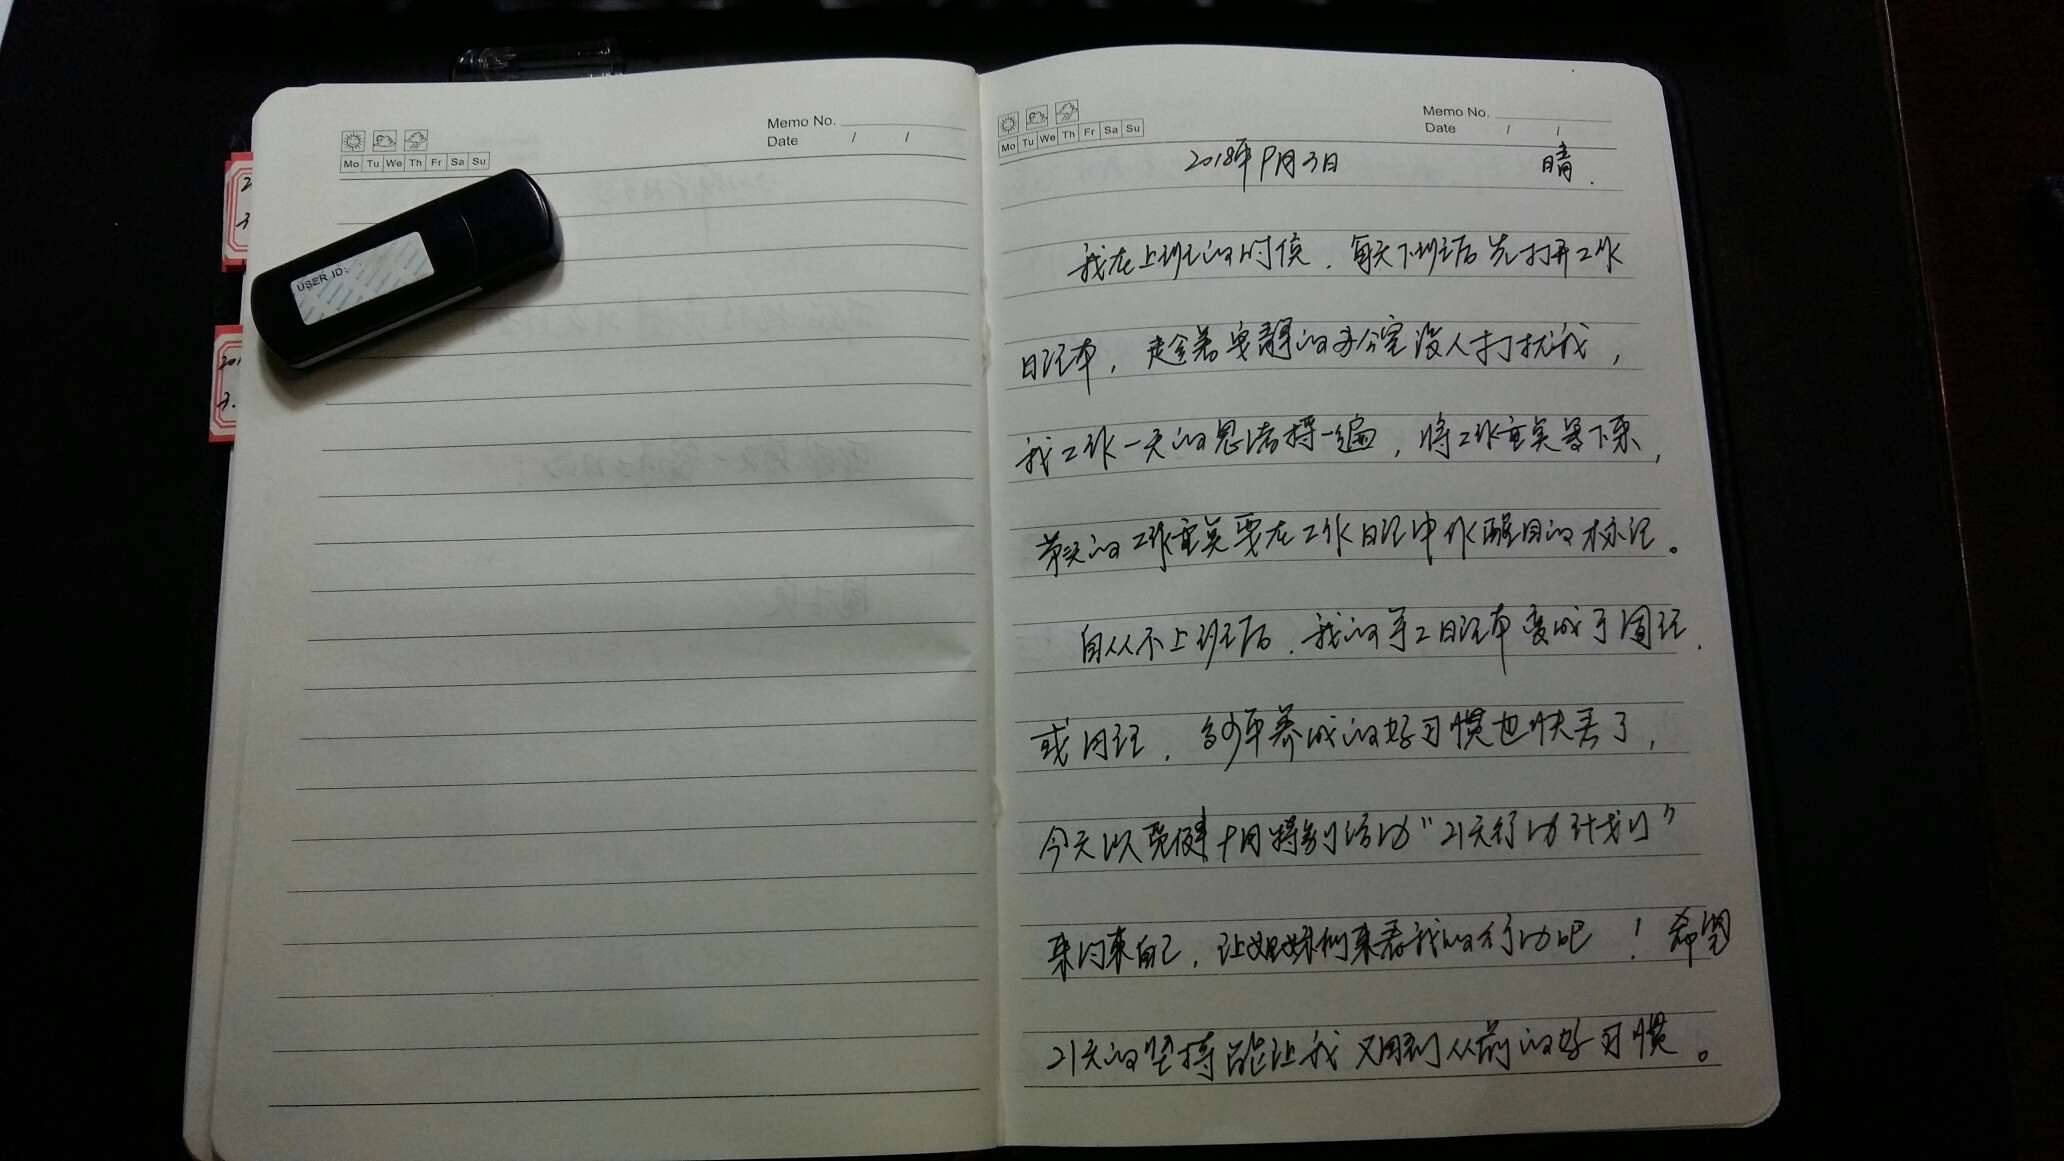 Memo No.
Date / /
Mo Tu We Th Fr Sa Su
USER ID:
Memo No.
Date / /
Mo Tu We Th Fr Sa Su
2018年9月3日 晴.
我在上班的时候,每天下班后先打开工作
日记本,趁着安静的办公室没人打扰我,
我工作一天的思绪捋一遍,将工作重点写下来,
第二天的工作重点要在工作日记中作醒目的标记。
自从不上班后,我的手工日记本变成了周记,
或月记,多少年养成的好习惯也快丢了,
今天以 九月特别活动"21天行动计划"
来约束自己,让姐妹们来看我的行动吧!希望
21天的坚持能让我又回到从前的好习惯。